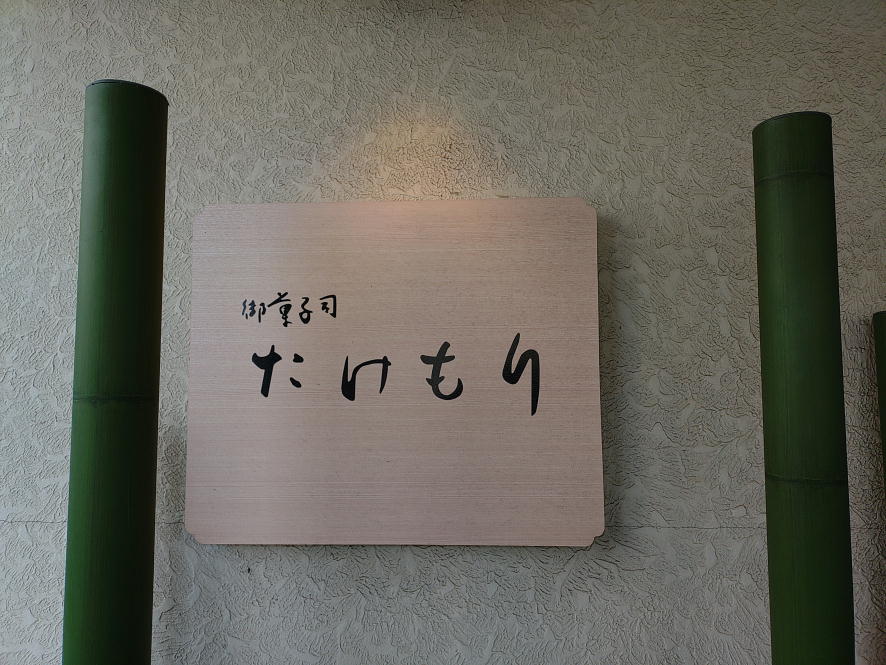 御菓子司
たけもり